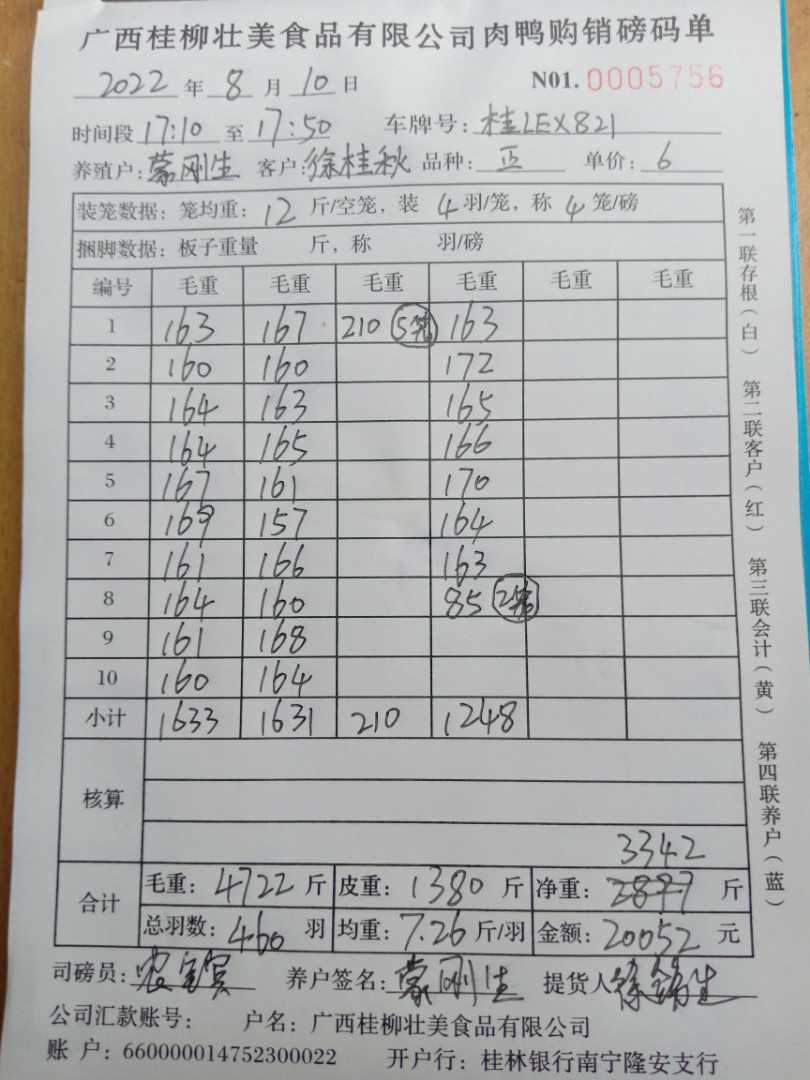 广西桂柳壮美食品有限公司肉鸭购销磅码单
2022 年 8 月 10 日 N01. 0005756
时间段 17:10 至 17:50 车牌号: 桂LEX821
养殖户: 蒙刚生 客户: 徐桂秋 品种: 正 单价: 6
装笼数据: 笼均重: 12 斤/空笼, 装 4 羽/笼, 称 4 笼/磅
捆脚数据: 板子重量 斤, 称 羽/磅
编号 毛重 毛重 毛重 毛重 毛重 毛重
1 163 167 210 5笼 163
2 160 160 172
3 164 163 165
4 164 165 166
5 167 161 170
6 169 157 164
7 161 166 163
8 164 160 85 2笼
9 161 168
10 160 164
小计 1633 1631 210 1248
核算
3342
合计 毛重: 4722 斤 皮重: 1380 斤 净重: 斤
总羽数: 460 羽 均重: 7.26 斤/羽 金额: 20052 元
司磅员: 养户签名: 蒙刚生 提货人
公司汇款账号: 户名: 广西桂柳壮美食品有限公司
账 户: 660000014752300022 开户行: 桂林银行南宁隆安支行
第一联存根(白) 第二联客户(红) 第三联会计(黄) 第四联养户(蓝)